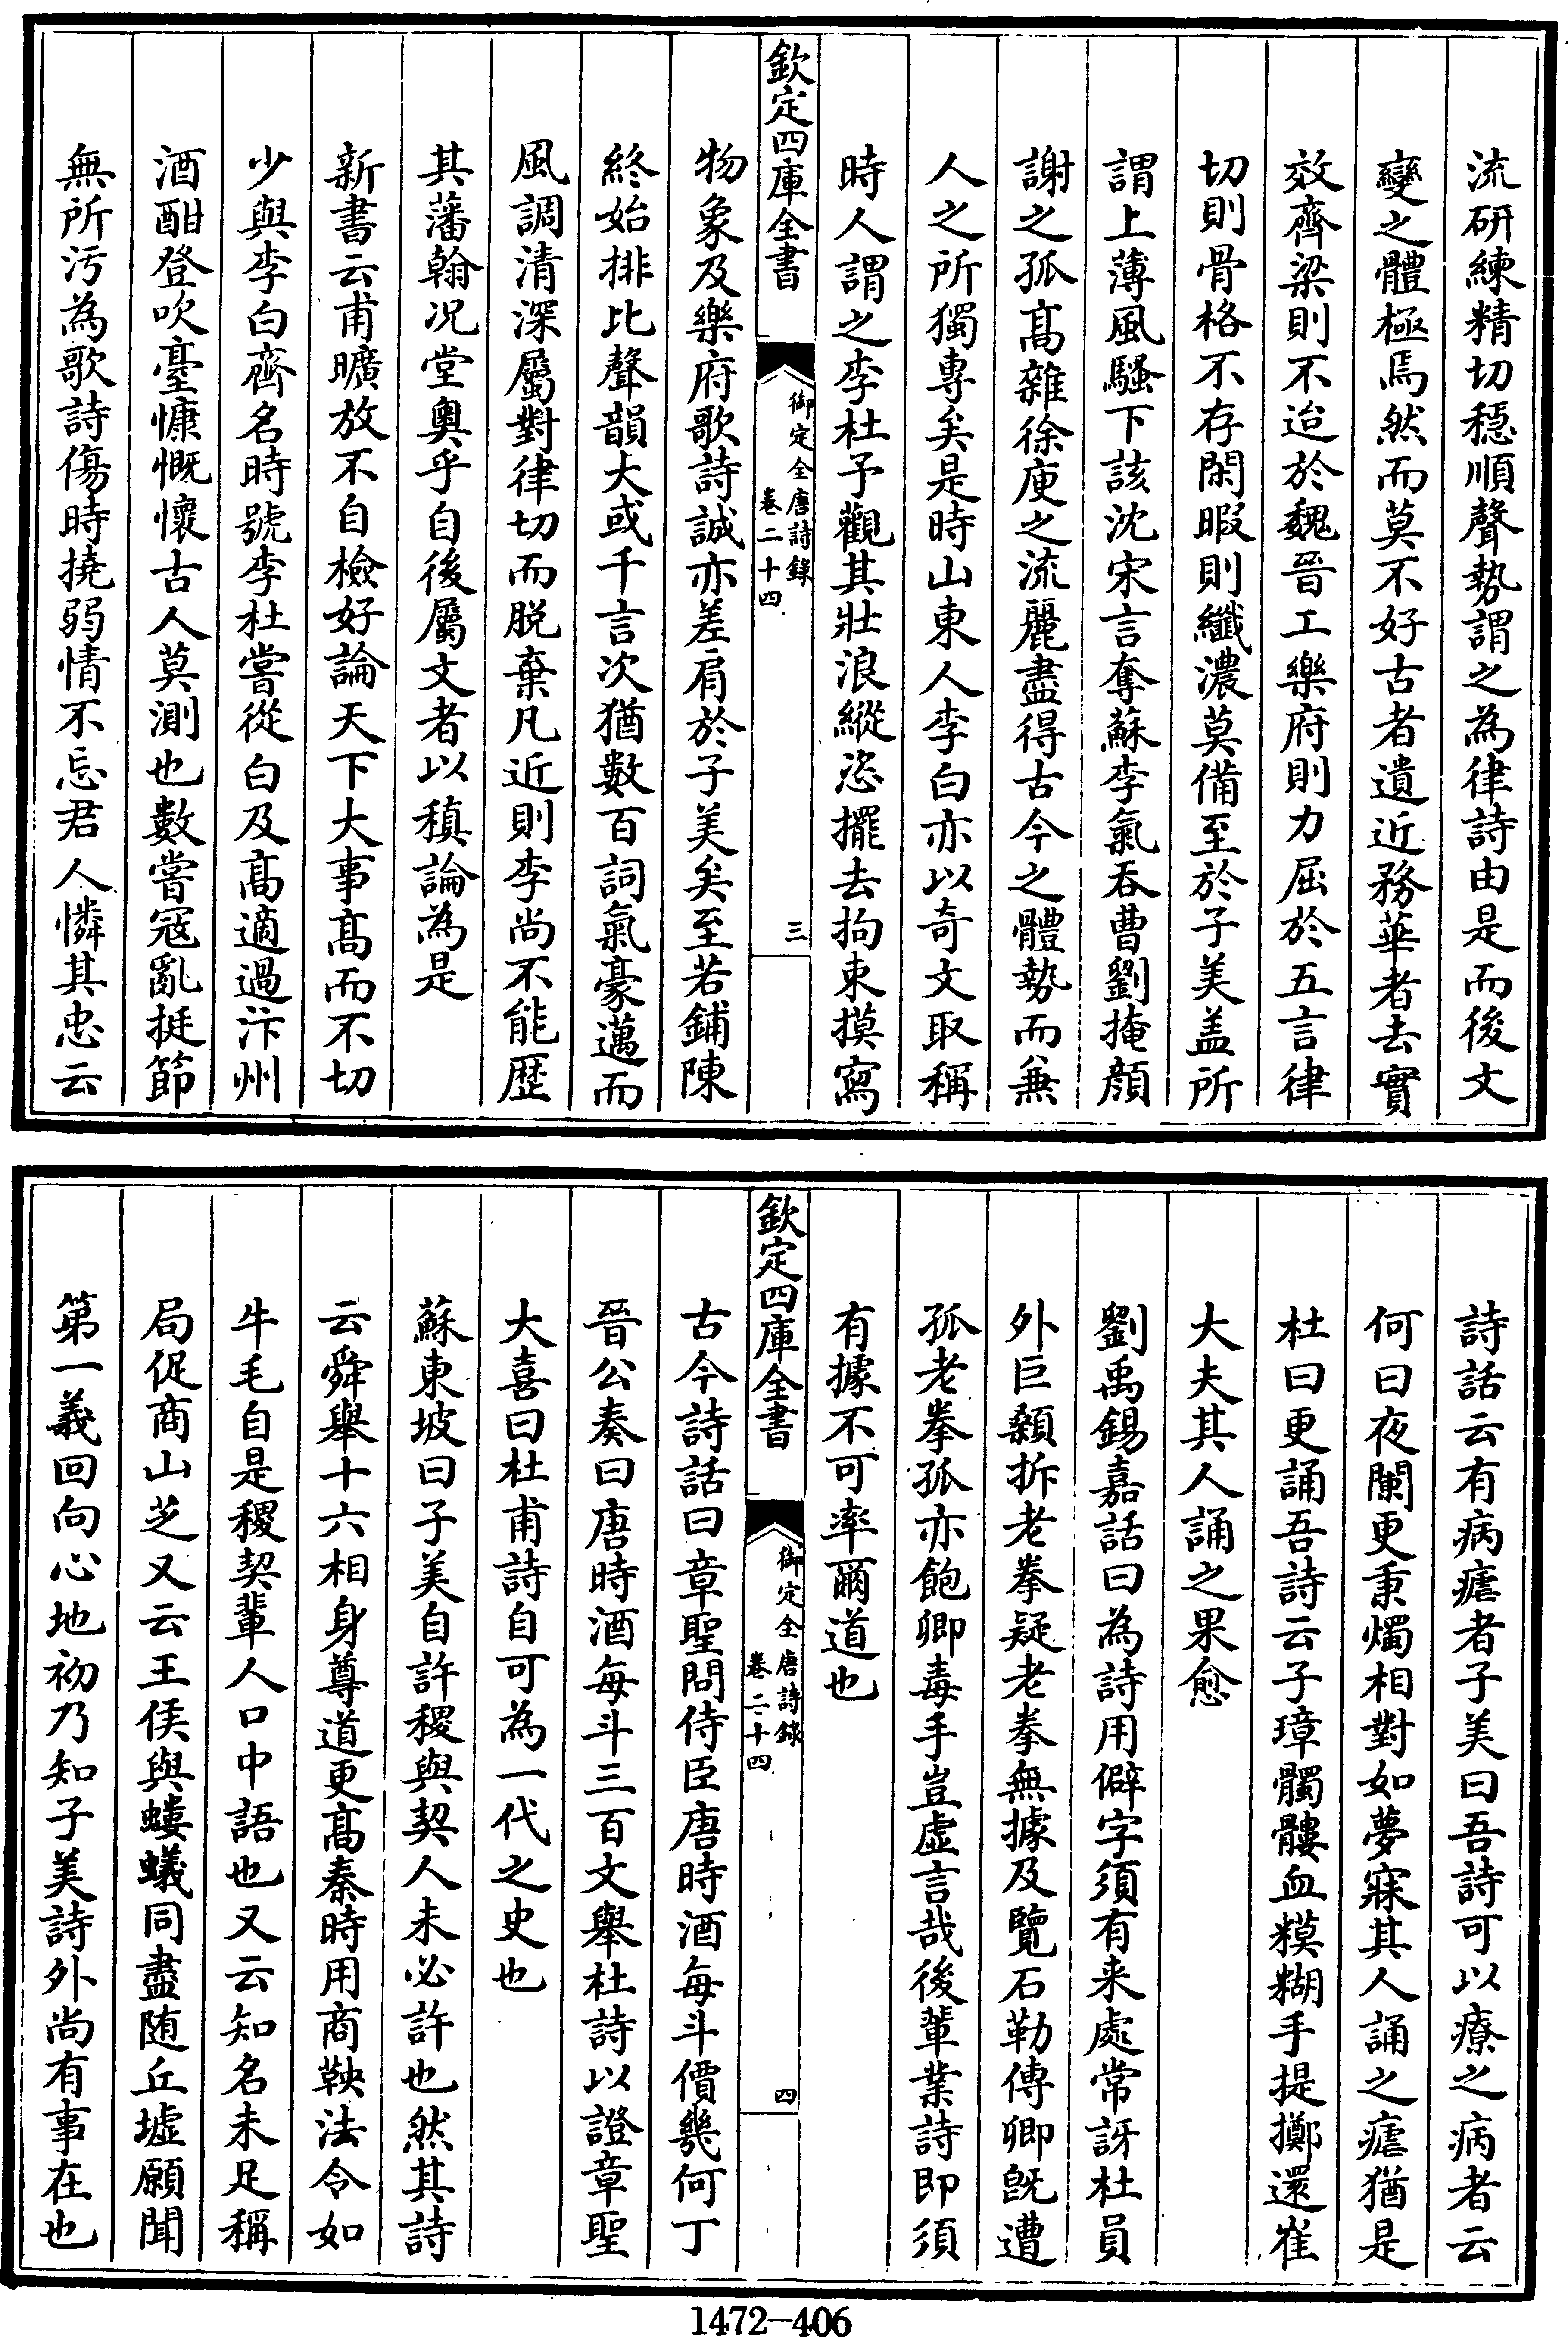 流研練精切穩順聲勢謂之為律詩由是而後文
變之體極焉然而莫不好古者遺近務華者去實
效齊梁則不迨於魏晉工樂府則力屈於五言律
切則骨格不存閑暇則纖濃莫備至於子美盖所
謂上薄風騷下該沈宋言奪蘇李氣吞曹劉掩顔
謝之孤髙雜徐庾之流麗盡得古今之體勢而兼
人之所獨專矣是時山東人李白亦以奇文取稱
時人謂之李杜予觀其壯浪縱恣擺去拘束摸寫
欽定四庫全書
御定全唐詩錄
卷二十四
三
物象及樂府歌詩誠亦差肩於子美矣至若鋪陳
終始排比聲韻大或千言次猶數百詞氣豪邁而
風調清深屬對律切而脱棄凡近則李尚不能歴
其藩翰况堂奧乎自後屬文者以稹論為是
新書云甫曠放不自檢好論天下大事髙而不切
少與李白齊名時號李杜嘗從白及髙適過汴州
酒酣登吹臺慷慨懷古人莫測也數嘗冦亂挺節
無所汚為歌詩傷時撓弱情不忘君人憐其忠云
詩話云有病瘧者子美曰吾詩可以療之病者云
何曰夜闌更秉燭相對如夢寐其人誦之瘧猶是
杜曰更誦吾詩云子璋髑髏血糢糊手提擲還崔
大夫其人誦之果愈
劉禹錫嘉話曰為詩用僻字須有来處常訝杜員
外巨顙拆老拳疑老拳無據及覽石勒傳卿旣遭
孤老拳孤亦飽卿毒手豈虚言哉後輩業詩即須
有據不可率爾道也
欽定四庫全書
御定全唐詩錄
卷二十四
四
古今詩話曰章聖問侍臣唐時酒每斗價幾何丁
晉公奏曰唐時酒每斗三百文舉杜詩以證章聖
大喜曰杜甫詩自可為一代之史也
蘇東坡曰子美自許稷與契人未必許也然其詩
云舜舉十六相身尊道更髙秦時用商鞅法令如
牛毛自是稷契輩人口中語也又云知名未足稱
局促商山芝又云王侯與螻蟻同盡随丘墟願聞
第一義回向心地初乃知子美詩外尚有事在也
1472-406